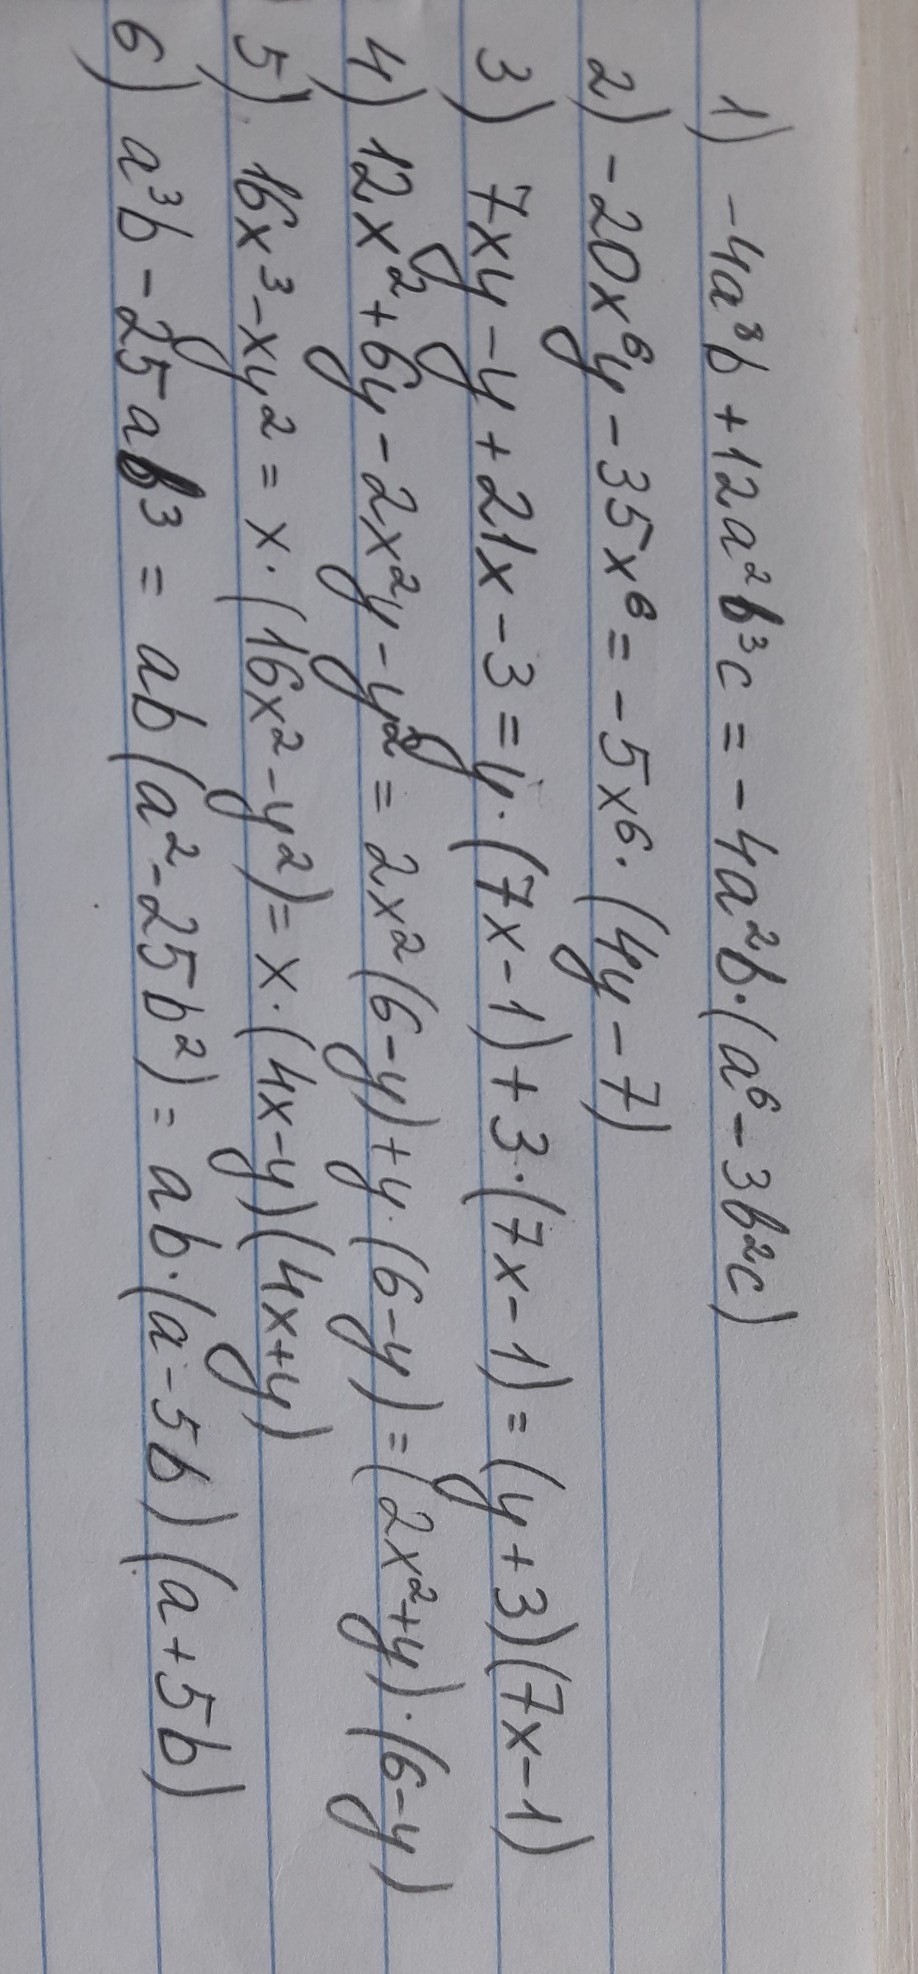 1) -4a⁸b + 12a²b³c = -4a²b·(a⁶ - 3b²c)
2) -20x⁶y - 35x⁶ = -5x⁶·(4y - 7)
3) 7xy - y + 21x - 3 = y·(7x - 1) + 3·(7x - 1) = (y + 3)(7x - 1)
4) 12x² + 6y - 2x²y - y² = 2x²(6 - y) + y·(6 - y) = (2x² + y)·(6 - y)
5) 16x³ - xy² = x·(16x² - y²) = x·(4x - y)(4x + y)
6) a³b - 25ab³ = ab(a² - 25b²) = ab·(a - 5b)(a + 5b)